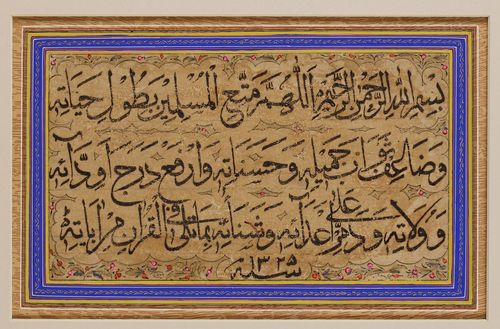 بسم الله الرحمن الرحيم اللهم متع المسلمين بطول حياته
وضاعف ثواب جميله وحسناته وارفع درجة أودائه
وولاته ودمر على أعدائه وشناته بما تلي في القرآن من آياته
سنه